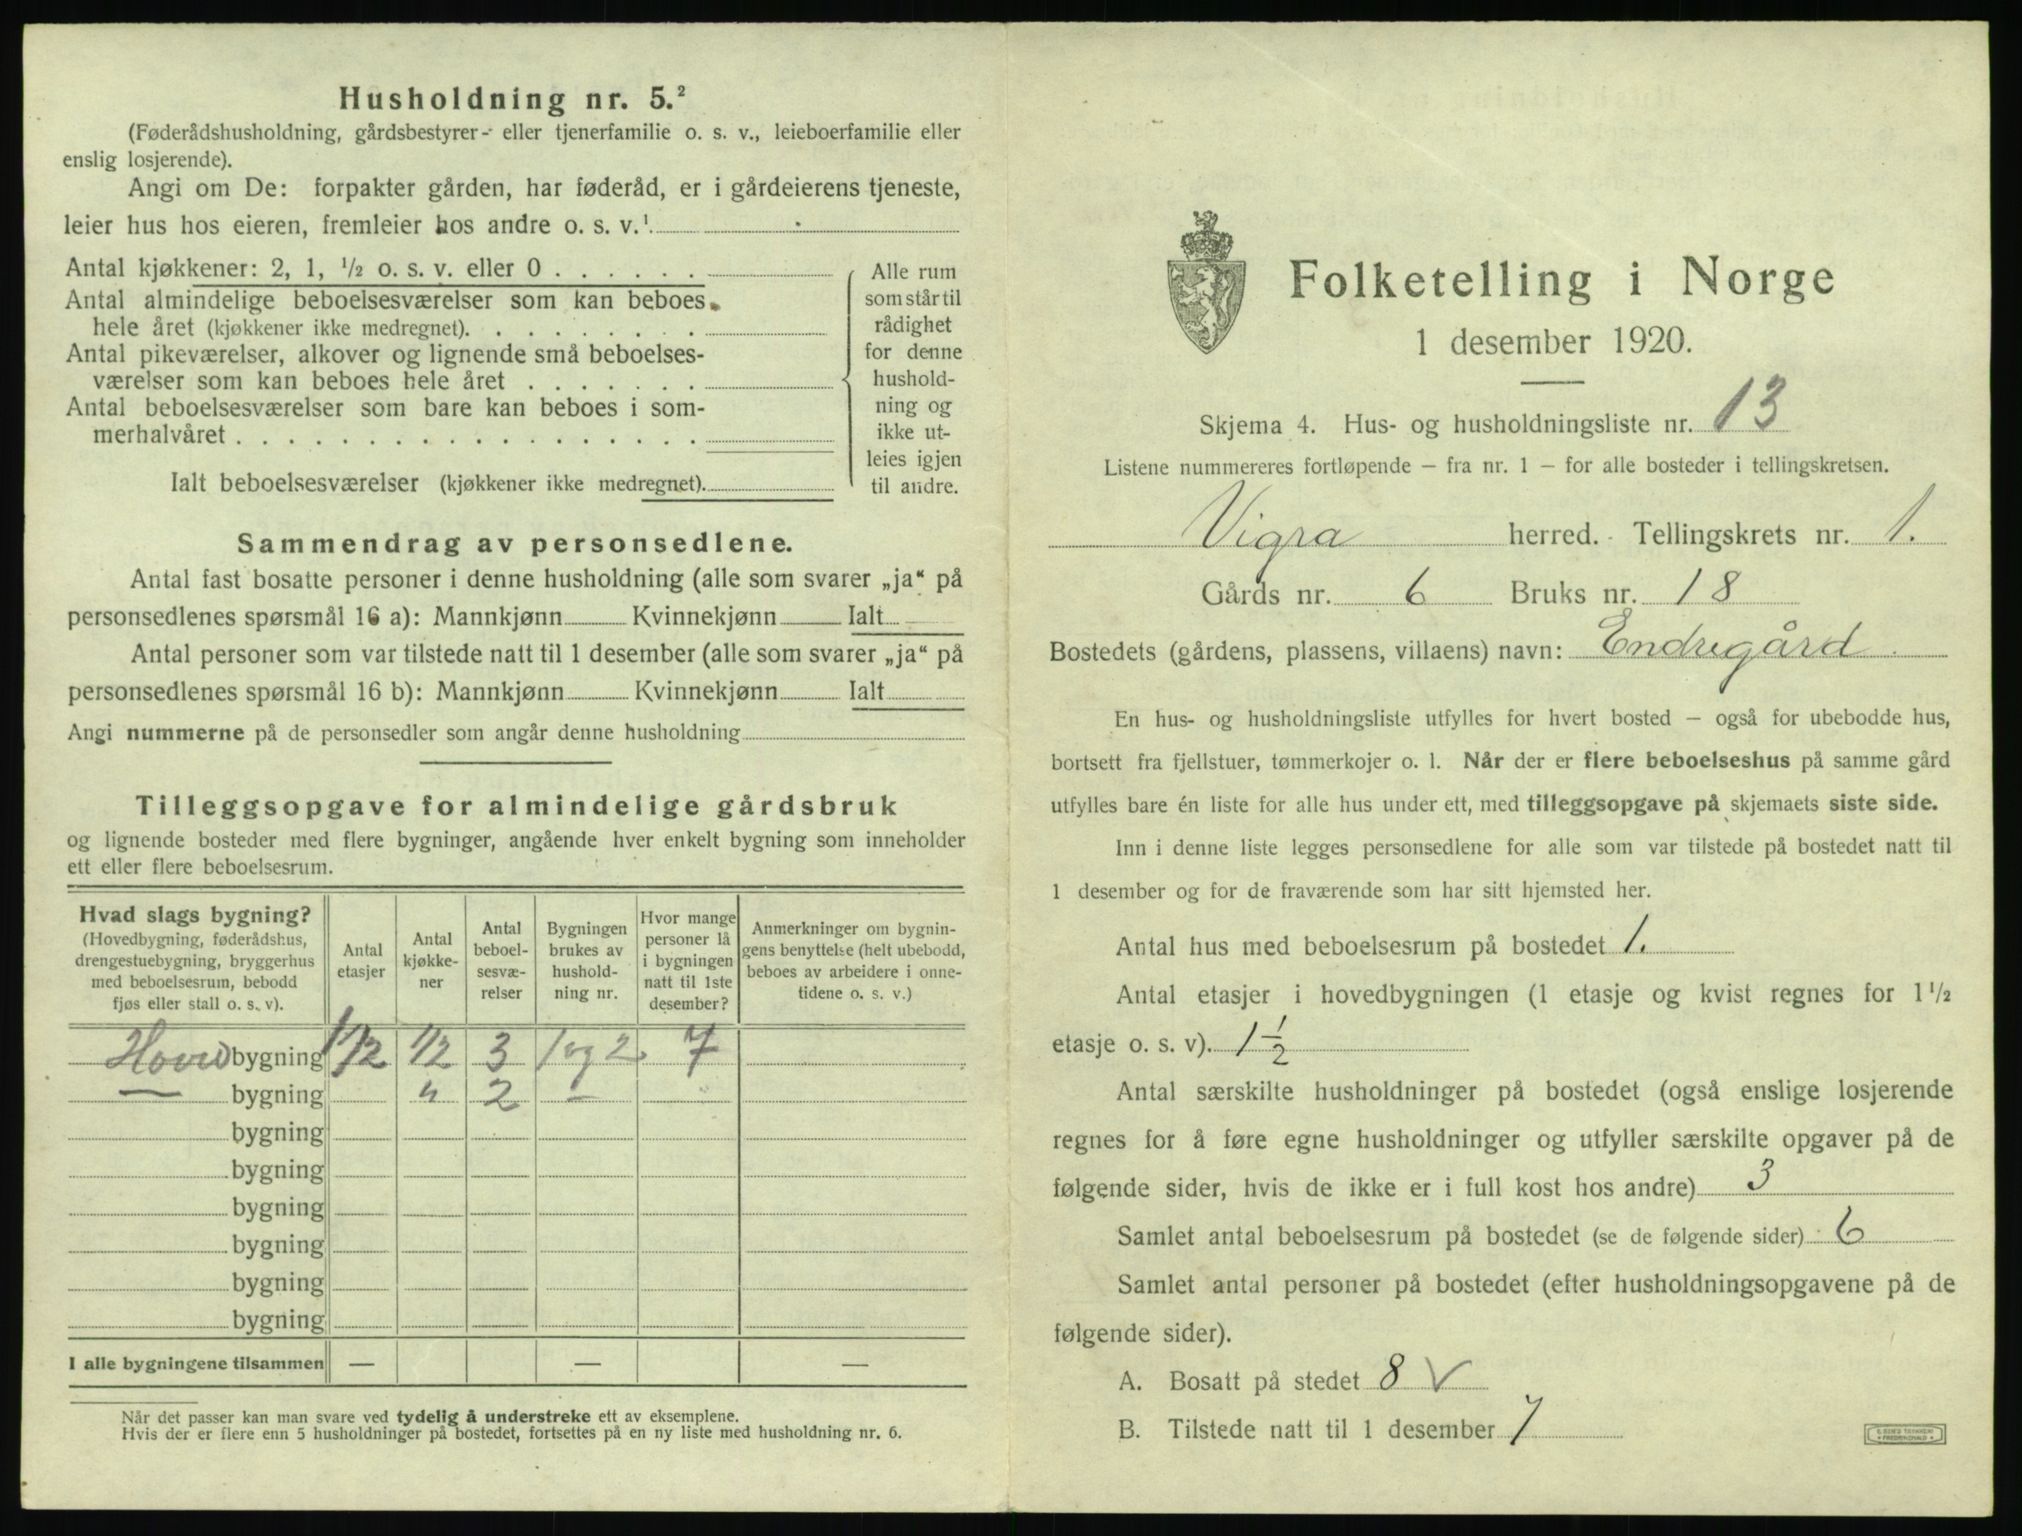 Husholdning nr. 5.²
(Føderådshusholdning, gårdsbestyrer- eller tjenerfamilie o. s. v., leieboerfamilie eller
enslig losjerende).
Angi om De: forpakter gården, har føderåd, er i gårdeierens tjeneste,
leier hus hos eieren, fremleier hos andre o. s. v.¹
Antal kjøkkener: 2, 1, ½ o. s. v. eller 0 . . . . . .
Antal almindelige beboelsesværelser som kan beboes
hele året (kjøkkener ikke medregnet). . . . . . . . .
Antal pikeværelser, alkover og lignende små beboelses-
værelser som kan beboes hele året . . . . . . .
Antal beboelsesværelser som bare kan beboes i som-
merhalvåret . . . . . . . . . . . . . . . . . .
Ialt beboelsesværelser (kjøkkener ikke medregnet).
Alle rum
som står til
rådighet
for denne
hushold-
ning og
ikke ut-
leies igjen
til andre.
Sammendrag av personsedlene.
Antal fast bosatte personer i denne husholdning (alle som svarer „ja“ på
personsedlenes spørsmål 16 a): Mannkjønn Kvinnekjønn Ialt
Antal personer som var tilstede natt til 1 desember (alle som svarer „ja“ på
personsedlenes spørsmål 16 b): Mannkjønn Kvinnekjønn Ialt
Angi nummerne på de personsedler som angår denne husholdning
Tilleggsopgave for almindelige gårdsbruk
og lignende bosteder med flere bygninger, angående hver enkelt bygning som inneholder
ett eller flere beboelsesrum.
Hvad slags bygning?
(Hovedbygning, føderådshus,
drengestuebygning, bryggerhus
med beboelsesrum, bebodd
fjøs eller stall o. s. v).
Antal
etasjer
Antal
kjøkke-
ner
Antal
beboel-
sesvæ-
relser
Bygningen
brukes av
hushold-
ning nr.
Hvor mange
personer lå
i bygningen
natt til 1ste
desember?
Anmerkninger om bygnin-
gens benyttelse (helt ubebodd,
beboes av arbeidere i onne-
tidene o. s. v.)
Hovedbygning 1½ 1/2 3 1 og 2 7
— bygning " 2 — "
bygning
bygning
bygning
bygning
bygning
bygning
I alle bygningene tilsammen — — —
Når det passer kan man svare ved tydelig å understreke ett av eksemplene.
Hvis der er flere enn 5 husholdninger på bostedet, fortsettes på en ny liste med husholdning nr. 6.
Folketelling i Norge
1 desember 1920.
Skjema 4. Hus- og husholdningsliste nr. 13
Listene nummereres fortløpende – fra nr. 1 – for alle bosteder i tellingskretsen.
Vigra herred. Tellingskrets nr. 1.
Gårds nr. 6 Bruks nr. 18
Bostedets (gårdens, plassens, villaens) navn: Endregård
En hus- og husholdningsliste utfylles for hvert bosted – også for ubebodde hus,
bortsett fra fjellstuer, tømmerkojer o. l. Når der er flere beboelseshus på samme gård
utfylles bare én liste for alle hus under ett, med tilleggsopgave på skjemaets siste side.
Inn i denne liste legges personsedlene for alle som var tilstede på bostedet natt til
1 desember og for de fraværende som har sitt hjemsted her.
Antal hus med beboelsesrum på bostedet 1.
Antal etasjer i hovedbygningen (1 etasje og kvist regnes for 1 ½
etasje o. s. v). 1 ½
Antal særskilte husholdninger på bostedet (også enslige losjerende
regnes for å føre egne husholdninger og utfyller særskilte opgaver på de
følgende sider, hvis de ikke er i full kost hos andre) 3
Samlet antal beboelsesrum på bostedet (se de følgende sider) 6
Samlet antal personer på bostedet (efter husholdningsopgavene på de
følgende sider).
A. Bosatt på stedet 8 V
B. Tilstede natt til 1 desember 7